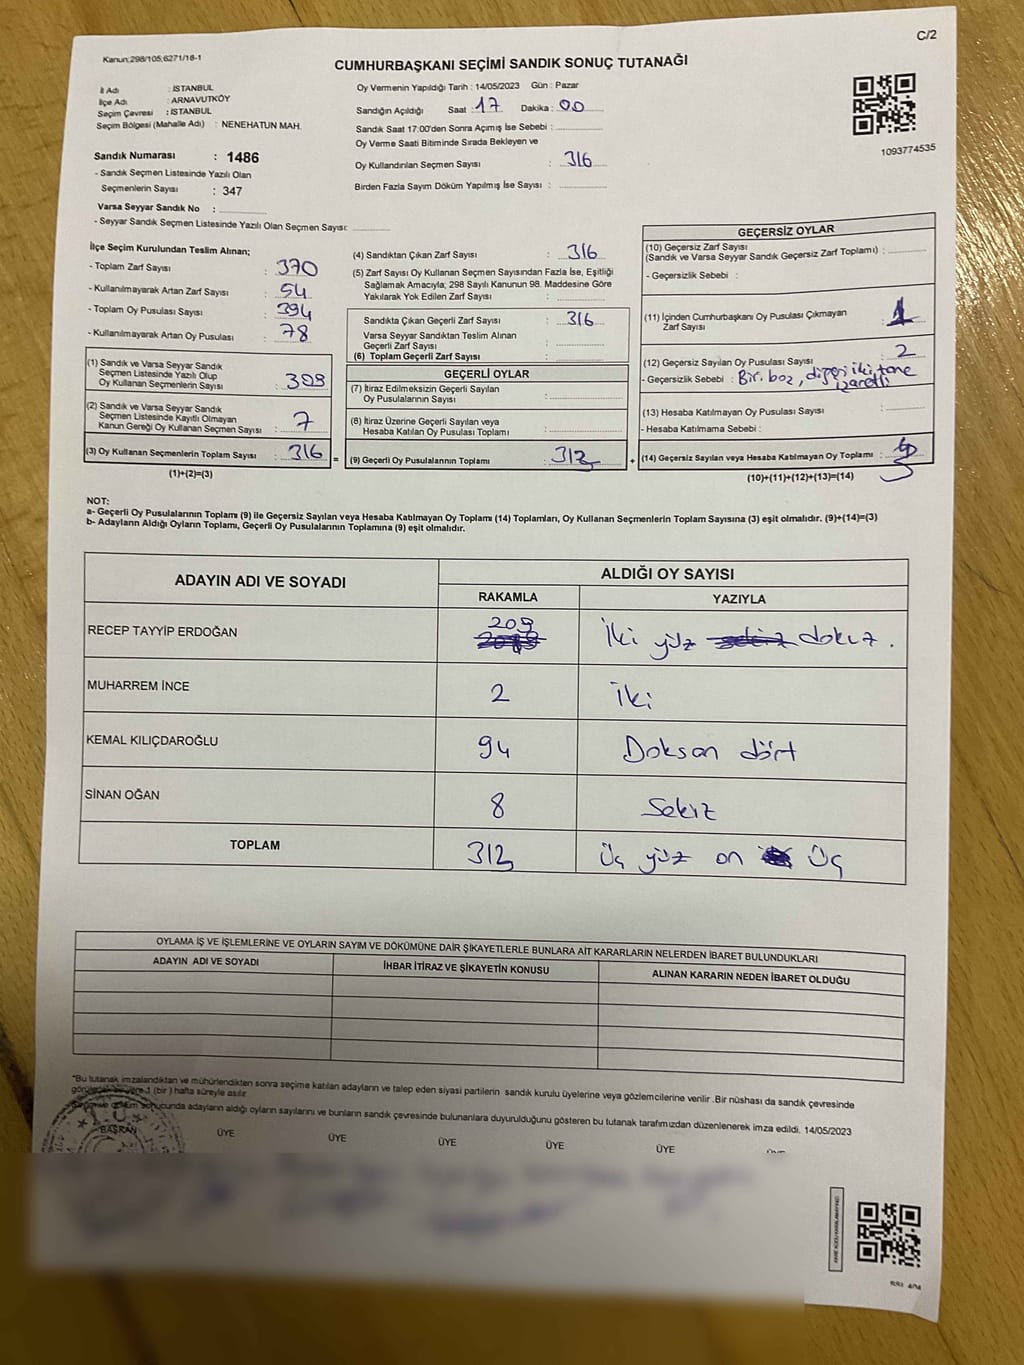 C/2
Kanun;298/105;6271/18-1
CUMHURBAŞKANI SEÇİMİ SANDIK SONUÇ TUTANAĞI
İl Adı : İSTANBUL
İlçe Adı : ARNAVUTKÖY
Seçim Çevresi : İSTANBUL
Seçim Bölgesi (Mahalle Adı) : NENEHATUN MAH.
Oy Vermenin Yapıldığı Tarih : 14/05/2023 Gün : Pazar
Sandığın Açıldığı Saat 17 Dakika : 00
Sandık Saat 17:00'den Sonra Açımış İse Sebebi :
Oy Verme Saati Bitiminde Sırada Bekleyen ve
Oy Kullandırılan Seçmen Sayısı : 316
Birden Fazla Sayım Döküm Yapılmış İse Sayısı :
1093774535
Sandık Numarası : 1486
- Sandık Seçmen Listesinde Yazılı Olan
Seçmenlerin Sayısı : 347
Varsa Seyyar Sandık No :
- Seyyar Sandık Seçmen Listesinde Yazılı Olan Seçmen Sayısı:
İlçe Seçim Kurulundan Teslim Alınan;
- Toplam Zarf Sayısı : 370
- Kullanılmayarak Artan Zarf Sayısı : 54
- Toplam Oy Pusulası Sayısı : 394
- Kullanılmayarak Artan Oy Pusulası : 78
(1) Sandık ve Varsa Seyyar Sandık
Seçmen Listesinde Yazılı Olup
Oy Kullanan Seçmenlerin Sayısı :
(2) Sandık ve Varsa Seyyar Sandık
Seçmen Listesinde Kayıtlı Olmayan
Kanun Gereği Oy Kullanan Seçmen Sayısı : 7
(3) Oy Kullanan Seçmenlerin Toplam Sayısı : 316
(1)+(2)=(3)
(4) Sandıktan Çıkan Zarf Sayısı : 316
(5) Zarf Sayısı Oy Kullanan Seçmen Sayısından Fazla İse, Eşitliği
Sağlamak Amacıyla; 298 Sayılı Kanunun 98. Maddesine Göre
Yakılarak Yok Edilen Zarf Sayısı :
Sandıkta Çıkan Geçerli Zarf Sayısı : 316
Varsa Seyyar Sandıktan Teslim Alınan
Geçerli Zarf Sayısı :
(6) Toplam Geçerli Zarf Sayısı :
GEÇERLİ OYLAR
(7) İtiraz Edilmeksizin Geçerli Sayılan
Oy Pusulalarının Sayısı :
(8) İtiraz Üzerine Geçerli Sayılan veya
Hesaba Katılan Oy Pusulası Toplamı :
= (9) Geçerli Oy Pusulalarının Toplamı : 313
GEÇERSİZ OYLAR
(10) Geçersiz Zarf Sayısı
(Sandık ve Varsa Seyyar Sandık Geçersiz Zarf Toplamı) :
- Geçersizlik Sebebi :
(11) İçinden Cumhurbaşkanı Oy Pusulası Çıkmayan
Zarf Sayısı : 1
(12) Geçersiz Sayılan Oy Pusulası Sayısı : 2
- Geçersizlik Sebebi : Bir. boz, diğeri iki tane
işaretli
(13) Hesaba Katılmayan Oy Pusulası Sayısı :
- Hesaba Katılmama Sebebi :
+ (14) Geçersiz Sayılan veya Hesaba Katılmayan Oy Toplamı : 3
(10)+(11)+(12)+(13)=(14)
NOT:
a- Geçerli Oy Pusulalarının Toplamı (9) ile Geçersiz Sayılan veya Hesaba Katılmayan Oy Toplamı (14) Toplamları, Oy Kullanan Seçmenlerin Toplam Sayısına (3) eşit olmalıdır. (9)+(14)=(3)
b- Adayların Aldığı Oyların Toplamı, Geçerli Oy Pusulalarının Toplamına (9) eşit olmalıdır.
ADAYIN ADI VE SOYADI ALDIĞI OY SAYISI
RAKAMLA YAZIYLA
RECEP TAYYİP ERDOĞAN 209 İki yüz dokuz.
MUHARREM İNCE 2 İki
KEMAL KILIÇDAROĞLU 94 Doksan dört
SİNAN OĞAN 8 Sekiz
TOPLAM 313 Üç yüz on Üç
OYLAMA İŞ VE İŞLEMLERİNE VE OYLARIN SAYIM VE DÖKÜMÜNE DAİR ŞİKAYETLERLE BUNLARA AİT KARARLARIN NELERDEN İBARET BULUNDUKLARI
ADAYIN ADI VE SOYADI İHBAR İTİRAZ VE ŞİKAYETİN KONUSU ALINAN KARARIN NEDEN İBARET OLDUĞU
"Bu tutanak imzalandıktan ve mühürlendikten sonra seçime katılan adayların ve talep eden siyasi partilerin sandık kurulu üyelerine veya gözlemcilerine verilir .Bir nüshası da sandık çevresinde
1 (bir ) hafta süreyle asılır.
sonucunda adayların aldığı oyların sayılarını ve bunların sandık çevresinde bulunanlara duyurulduğunu gösteren bu tutanak tarafımızdan düzenlenerek imza edildi. 14/05/2023
BAŞKAN ÜYE ÜYE ÜYE ÜYE ÜYE